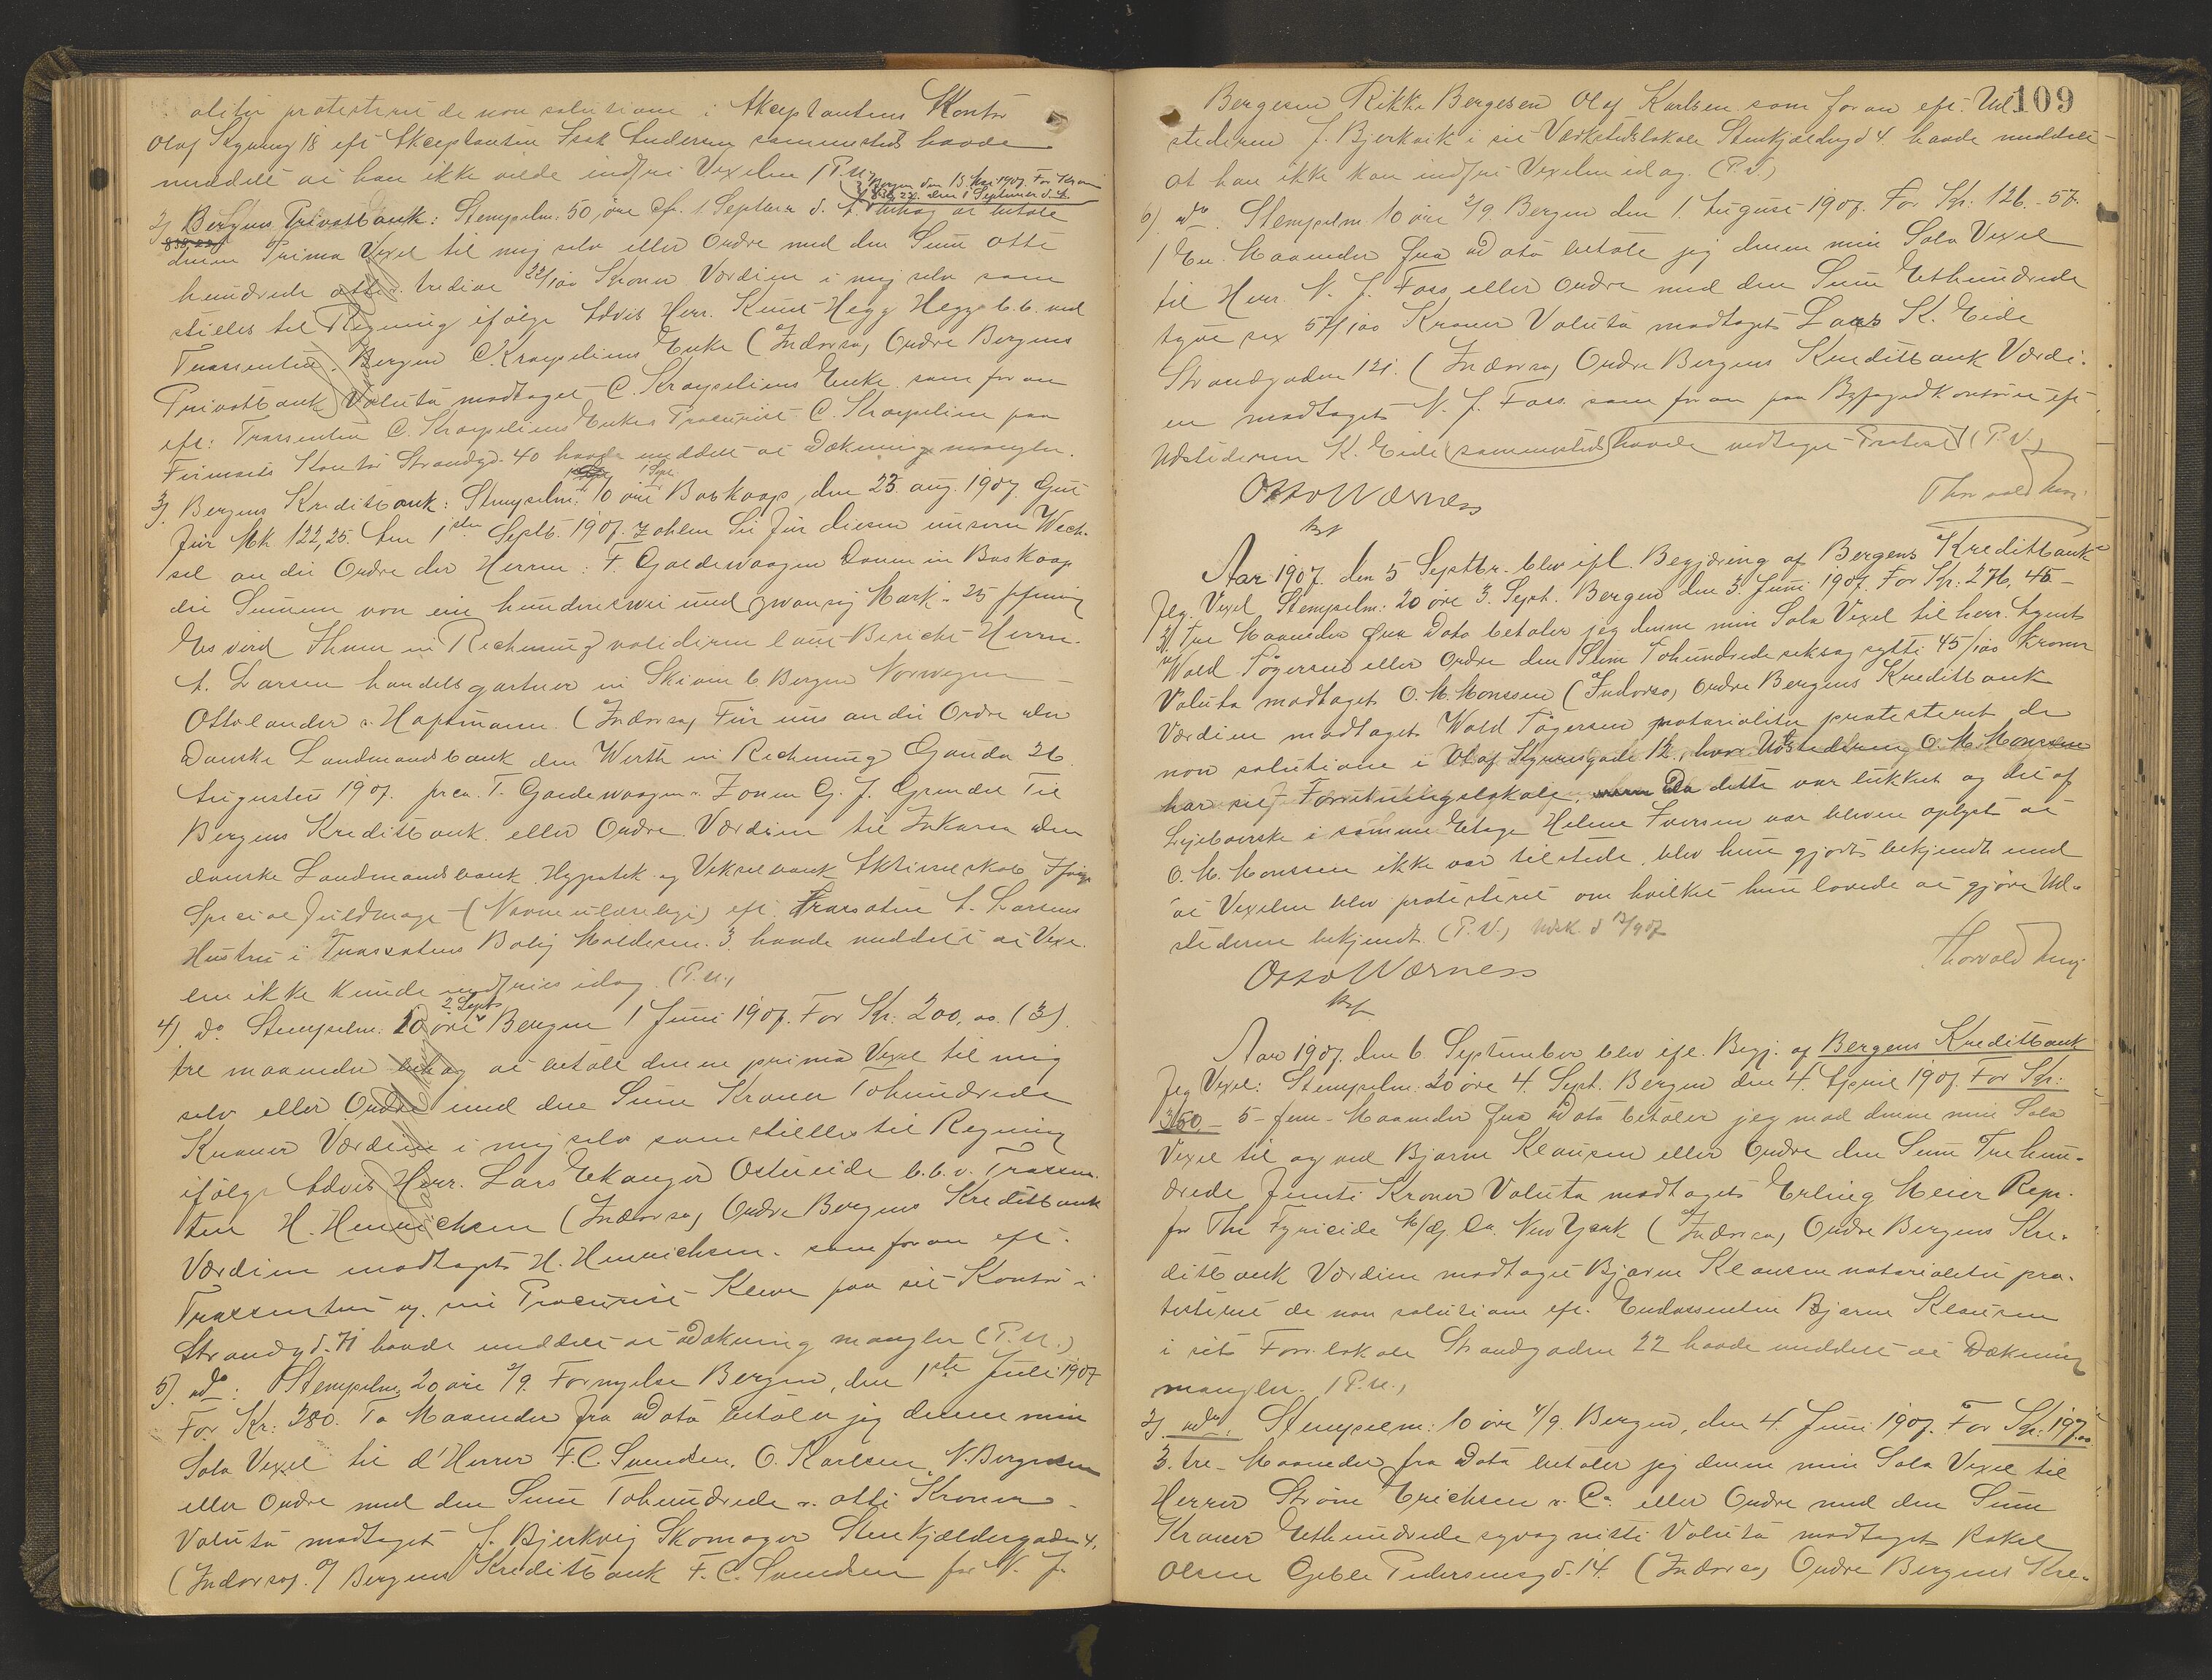 aliter protesteret de non solutione i Akceptantens Kontor
Olaf Kyrresg 18 eft Akceptanten Isak Andersen sammesteds havde
meddelt at han ikke vilde indfri Vexelen (P.U.)
Bergen den 15 Mai 1907. For Kroner
838,22. den 1 September d. A.
2) Bergens Privatbank: Stempelm: 50 øre Pr. 1 Septbr d. A. behag at betale
838,22
denne Prima Vexel til mig selv eller Ordre med den Sum otte
hundrede otte & tredive 22/100 Kroner Værdien i mig selv som
stilles til Regning ifølge Advis Herr. Knut Hegg Hegg b. 6. ved
Trassenten. Bergen C. Kraepeliens Enke (Indorsa) Ordre Bergens
Privatbank Valuta modtaget C. Kraepeliens Enke som foran
eft: Trassenten C. Kraepeliens Enkes Procurist C. Kraepelien paa
Firmaets Kontor Strandgd. 40 havde meddelt at Dækning mangler.
1 Sept.
3) Bergens Kreditbank: Stempelm: 10 øre Boskoop, den 23. aug. 1907. Gut
für Mk 122,25. Am 1sten Septb. 1907. zahlen Sie für diesen unsern Wech-
sel an die Ordre der Herren: F. Goedewaagen Zonen in Boskoop
die Summe von ein hundertzwei und zwanzig Mark. 25 pfennig
Es wird Ihnen in Rechnung validiren laut Bericht Herrn.
A. Larsen handelsgartner in Skiven b Bergen Norwegen
Ottolander & Hooftmann. (Indorsa) Für uns an die Ordre der
Danske Landmandsbank den Werth in Rechnung Gouda 26
Augustus 1907. pr ca. T. Goedewaagen & Zonen G. J. Grendel Til
Bergens Kreditbank eller Ordre Værdien til Inkasso den
danske Landmandsbank Hypotek og Vekselbank Aktieselskab Ifølge
Special fuldmagt (Navne ulæselige) eft. Trassatens A. Larsens
Hustru i Trassatens Bolig Haldesm. 3. havde meddelt at Vexe-
len ikke kunde indfries idag. (P.U.)
2 Sept
4) do Stempelm: 20 øre Bergen 1 Juni 1907. For Kr. 200,00. (3)
tre maaneder behag at betale denne prima Vexel til mig
selv eller Ordre med den Sum Kroner Tohundrede
Kroner Værdien i mig selv som stilles til Regning
ifølge Advis Herr. Lars Ekanger Ostereide b. b. v. Trassen-
ten H. Henrichsen (Indorsa) Ordre Bergens Kreditbank
Værdien modtaget H. Henrichsen. som foran eft.
Trassenten og. sin Procurist Kleve paa sit Kontor i
Strandgd. 71 havde meddelt at Dækning mangler (P.U.)
5) do: Stempelm: 20 øre 2/9. Fornyelse Bergen, den 1ste Juli 1907
For Kr: 280. To Maaneder fra Dato betaler jeg denne min
Sola Vexel til d'Herrer F.C. Svendsen. O. Karlsen, N. Bergesen
eller Ordre med den Sum Tohundrede & otti Kroner
Valuta modtaget J. Bjerkvig Skomager Stenkjældergaden 4.
(Indorsa). O/ Bergens Kreditbank F. C. Svendsen for N. J.
109
Bergesen Rikke Bergesen Olaf Karlsen som foran eft. Ud-
stederen J. Bjerkvik i sit Værkstedslokale Stenkjældergd 4. havde meddelt
at han ikke kan indfri Vexelen idag. (P.U.)
6) do. Stempelm 10 øre 2/9. Bergen den 1. August 1907. For Kr: 126.-57.
1 En. Maaneder fra Dato betale jeg denne min Sola Vexel
til Herr. N. J. Foss eller Ordre med den Sum Ethundrede
tyve sex 57/100 Kroner Valuta modtaget Lars K. Eide
Strandgaden 121. (Indorsa) Ordre Bergens Kreditbank Værdi-
en modtaget N. J. Foss. som foran paa Byfogedkontoret eft
Udstederen K. Eide sammesteds havde vedtaget Protest (P.U.)
Otto Wærness
Thorvald
Aar 1907. den 5 Septbr. blev ifl. Begjæring af Bergens Kreditbank
flg. Vexel Stempelm: 20 øre 3. Sept. Bergen den 3. Juni 1907. For Kr: 276,45.-
3/ Tre Maaneder fra Dato betaler jeg denne min Sola Vexel til herr. Agent
Wald Tøgersen eller Ordre den Sum Tohundrede seksogsytti 45/100 Kroner
Valuta modtaget O. M. Monssen (Indorsa) Ordre Bergens Kreditbank
Værdien modtaget Wald Tøgersen notarialiter protesteret de
non solutione i Olaf Kyrresgade 12, hvor Udstederen O. M. Monssen
har sit Forretningslokale. Da dette var lukket og det af
Leieboerske i samme Etage Helene Iversen var bleven oplyst at
O. M. Monssen ikke var tilstede, blev hun gjort bekjendt med
at Vexelen blev protesteret om hvilket hun lovede at gjøre Ud-
stederen bekjendt. (P.U.) Udsk. d 12/9 07
Otto Wærness
Thorvald
Aar 1907. den 6 September blev ifl. Begj. af Bergens Kreditbank
flg Vexel: Stempelm: 20 øre 4. Sept. Bergen den 4. April 1907. For Kr:
350.- 5- fem- Maaneder fra Dato betaler jeg mod denne min Sola
Vexel til og ved Bjarne Klausen eller Ordre den Sum Trehun-
drede femti Kroner Valuta modtaget Erling Meier Repr.
for The Fyricide M/fg. Co. New York (Indorsa) Ordre Bergens Kre-
ditbank Værdien modtaget Bjarne Klausen notarialiter pro-
testeret de non solutione eft. Endossenten Bjarne Klausen
i sit Forr. lokale Strandgaden 22 havde meddelt at Dækning
mangler. (P.U.)
2) do. Stempelm: 10 øre 4/9. Bergen, den 4. Juni 1907. For Kr: 197.00
3. tre- Maaneder fra Dato betaler jeg denne min Sola Vexel til
Herrer Strøm Erichsen & Co. eller Ordre med den Sum
Kroner Ethundrede syvognitti Valuta modtaget Rakel
Olsen Geble Pedersensgd. 14. (Indorsa) Ordre Bergens Kre-